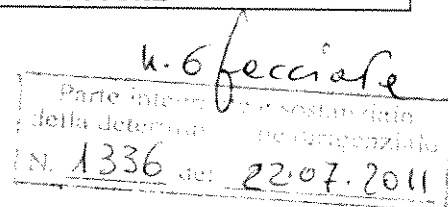 n. 6 facciate
Parte integrante e sostanziale
della determin dirigenziale
N. 1336 del 22.07.2011